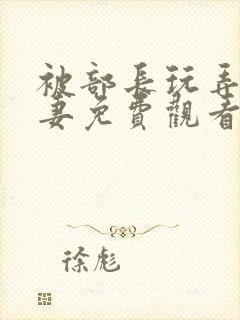 被部長玩弄
妻免費觀看
徐彪